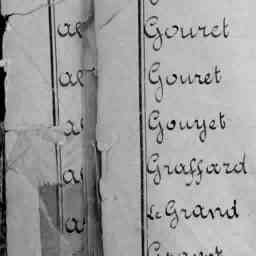 Gouret
Gouret
Gouyet
Graffard
Le Grand